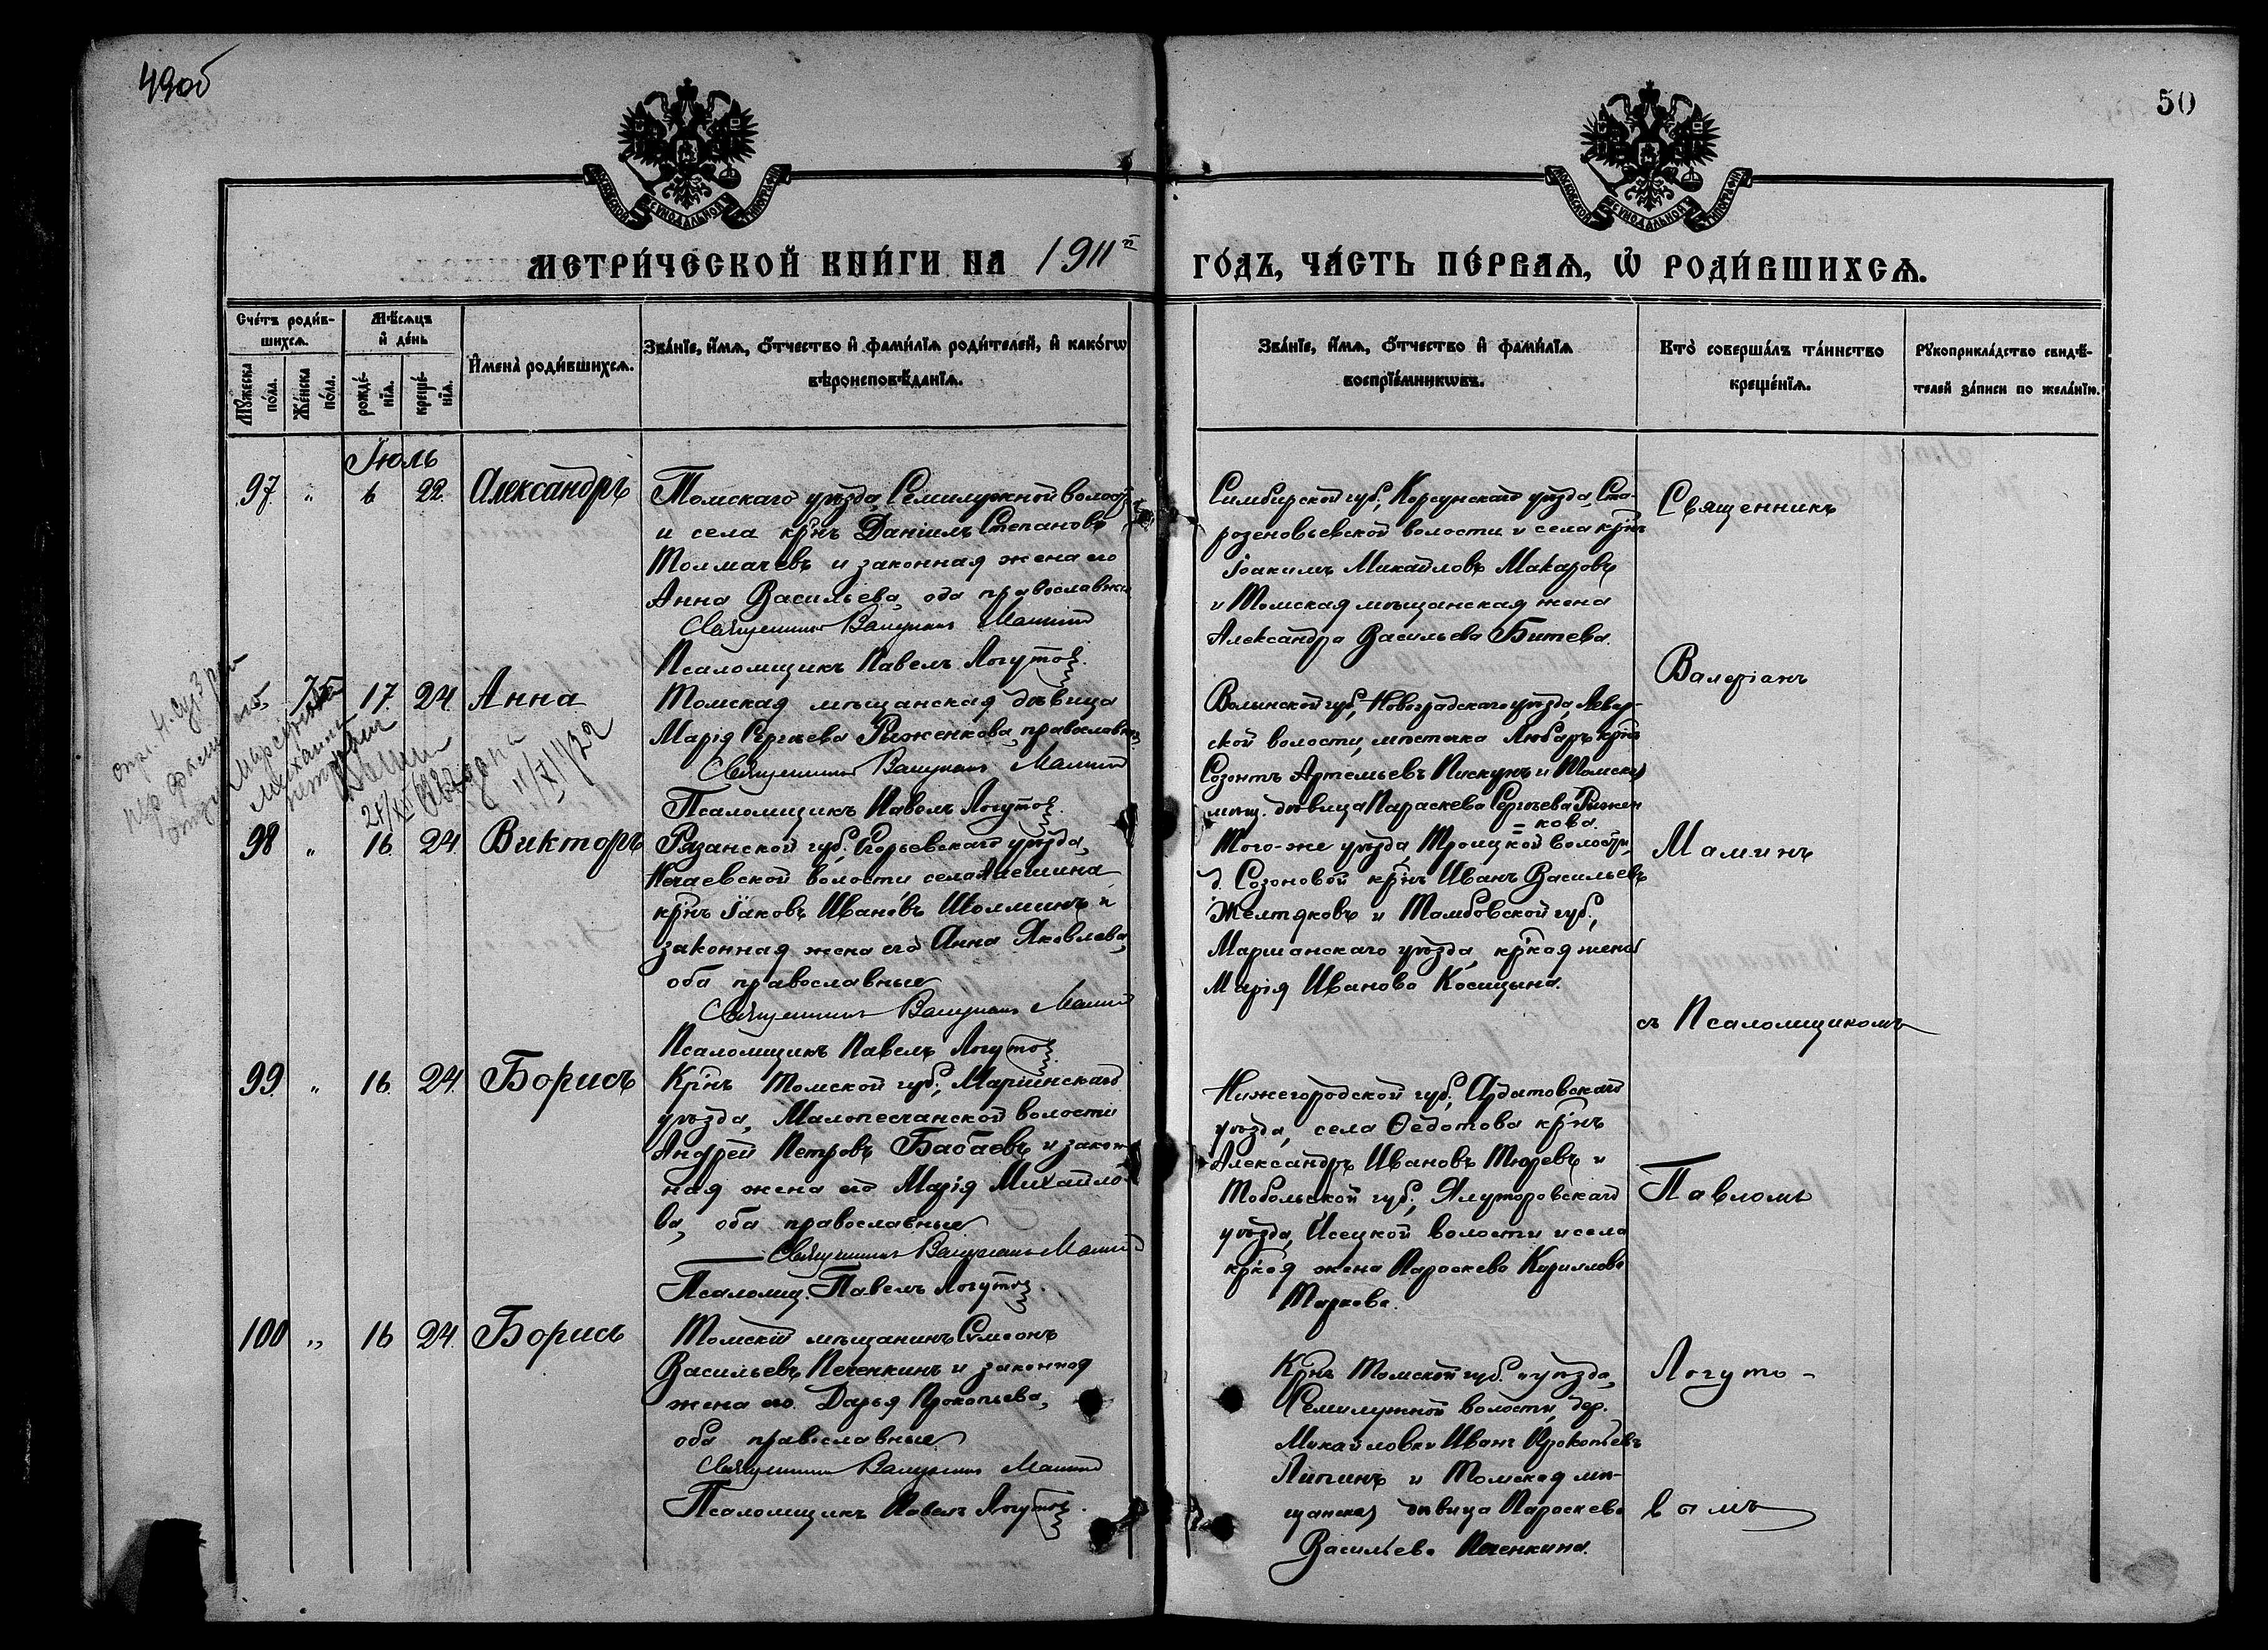 49об
50
МОСКОВСКОЙ СѴНОДАЛЬНОЙ ТИПОГРАФІИ
МОСКОВСКОЙ СѴНОДАЛЬНОЙ ТИПОГРАФІИ
МЕТРИ́ЧЕСКОЙ КНИ́ГИ НА 1911й
ГО́ДЪ, ЧА́СТЬ ПЕ́РВАѦ, Ѡ҆ РОДИ́ВШИХСѦ.
Сче́тъ роди́в-
шихсѧ.
Мꙋ́жеска по́ла.
Же́нска по́ла.
Мѣ́сѧцъ
и҆ де́нь
рожде́-
нїѧ.
креще́-
нїѧ.
И҆мена̀ роди́вшихсѧ.
Зва́нїе, и҆́мѧ, ѻ҆́тчество и҆ фами́лїѧ роди́телей, и҆ како́гѡ
вѣроисповѣ́данїѧ.
Зва́нїе, и҆́мѧ, ѻ҆́тчество и҆ фами́лїѧ
воспрїе́мникѡвъ.
Кто̀ соверша́лъ та́инство
креще́нїѧ.
Рꙋкоприкла́дство свидѣ́-
телей за́писи по жела́нїю.
Іюль
97 " 6 22. Александръ
Томскаго уѣзда, Семилужной волости
и села кр͞нъ Даніилъ Степановъ
Толмачевъ и законная жена его
Анна Васильева, оба православные
Священникъ Валеріанъ Маминъ
Псаломщикъ Павелъ Логутов.
Симбирской губ., Корсунскаго уѣзда, Ста-
розеновьевской волости и села кр͞нъ
Іоакимъ Михайловъ Макаровъ
и Томская мѣщанская жена
Александра Васильева Битева.
17. 24 Анна
Томская мѣщанская дѣвица
Марія Сергѣева Рыженкова, православная
Священникъ Валеріанъ Маминъ
Псаломщикъ Павелъ Логутов.
Волынской губ., Новоградскаго уѣзда,
ской волости, мѣстечка Любаръ кр͞нъ
Созонтъ Артемьевъ Пискунъ и Томская
мѣщ. дѣвица Параскева Сергѣева Рыжен
=кова.
98 " 16. 24. Викторъ
Рязанской губ., Егорьевскаго уѣзда,
Нечаевской волости села Алешина
кр͞нъ Іаковъ Ивановъ Шолминъ и
законная жена его Анна Яковлева,
оба православные
Священникъ Валеріанъ Маминъ
Псаломщикъ Павелъ Логутов.
Того-же уѣзда, Троицкой волости,
д. Созоновой кр͞нъ Иванъ Васильевъ
Желтяковъ и Тамбовской губ.,
Маршанскаго уѣзда, кр͞кая жена
Марія Иванова Косицына.
99. " 16. 24. Борисъ
Кр͞нъ Томской губ., Маріинскаго
уѣзда, Малопесчанской волости
Андрей Петровъ Бабаевъ и закон
ная жена его Марія Михайло-
ва, оба православные
Священникъ Валеріанъ Маминъ
Псаломщ. Павелъ Логутов.
Нижегородской губ., Ардатовскаго
уѣзда, села Ѳедотова кр͞нъ
Александръ Ивановъ Тюревъ и
Тобольской губ., Ялуторовскаго
уѣзда, Исецкой волости и села
кр͞кая жена Параскева Кириллова
Маркова.
100 " 16 24. Борисъ
Томскій мѣщанинъ Симеонъ
Васильевъ Печенкинъ и законная
жена его Дарья Прокопьева,
оба православные
Священникъ Валеріанъ Маминъ
Псаломщикъ Павелъ Логутов.
Кр͞нъ Томской губ. и уѣзда,
Семилужной волости, дер.
Михайловки Иванъ Прокопьевъ
Липинъ и Томская мѣ-
щанская дѣвица Параскева
Васильева Печенкина.
Священникъ
Валеріанъ
Маминъ
съ Псаломщикомъ
Павломъ
Логуто-
вымъ